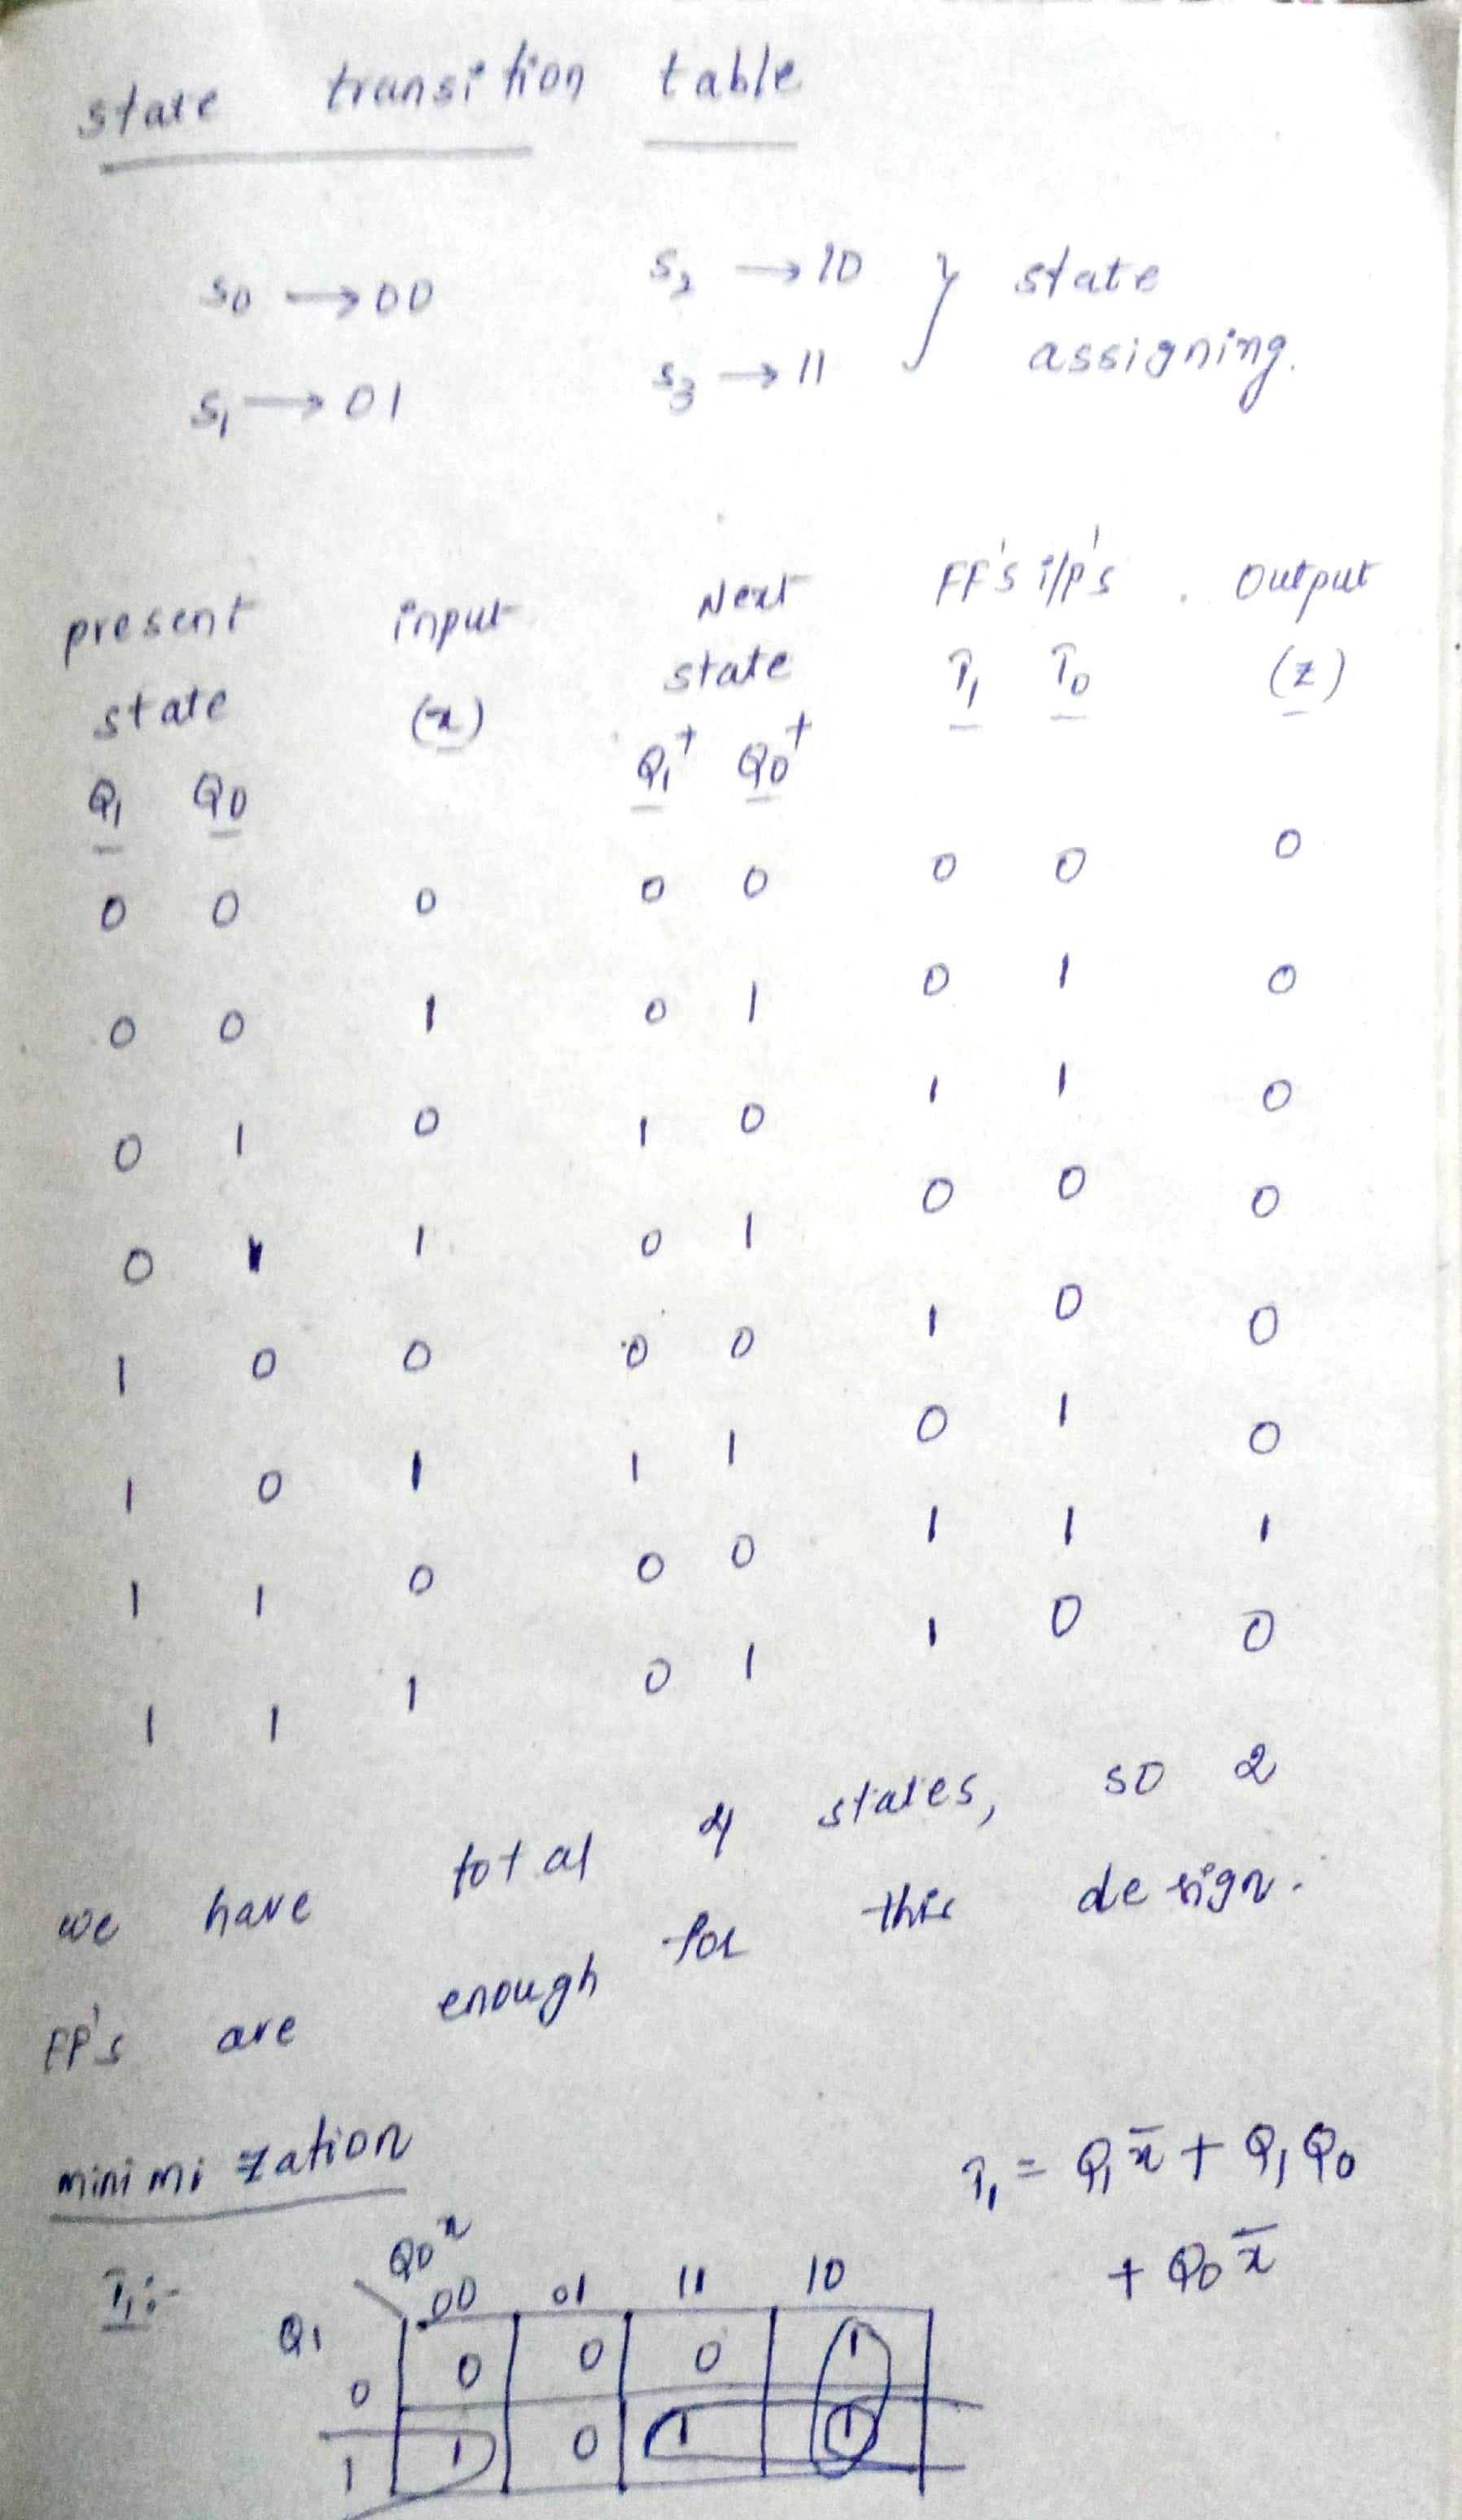 state transition table
S0 → 00 S2 → 10 } state
S1 → 01 S3 → 11 assigning.
present input Next FF's i/p's . Output
state (x) state T1 T0 (z)
Q1 Q0 Q1+ Q0+
0 0 0 0 0 0 0 0
0 0 1 0 1 0 1 0
0 1 0 1 0 1 1 0
0 1 1 0 1 0 0 0
1 0 0 0 0 1 0 0
1 0 1 1 1 0 1 0
1 1 0 0 0 1 1 1
1 1 1 0 1 1 0 0
we have total 4 states, so 2
FF's are enough for this design.
minimization
T1 = Q1x̄ + Q1Q0
+ Q0x̄
T1:-
Q0x
Q1 00 01 11 10
0 0 0 0 1
1 1 0 1 1